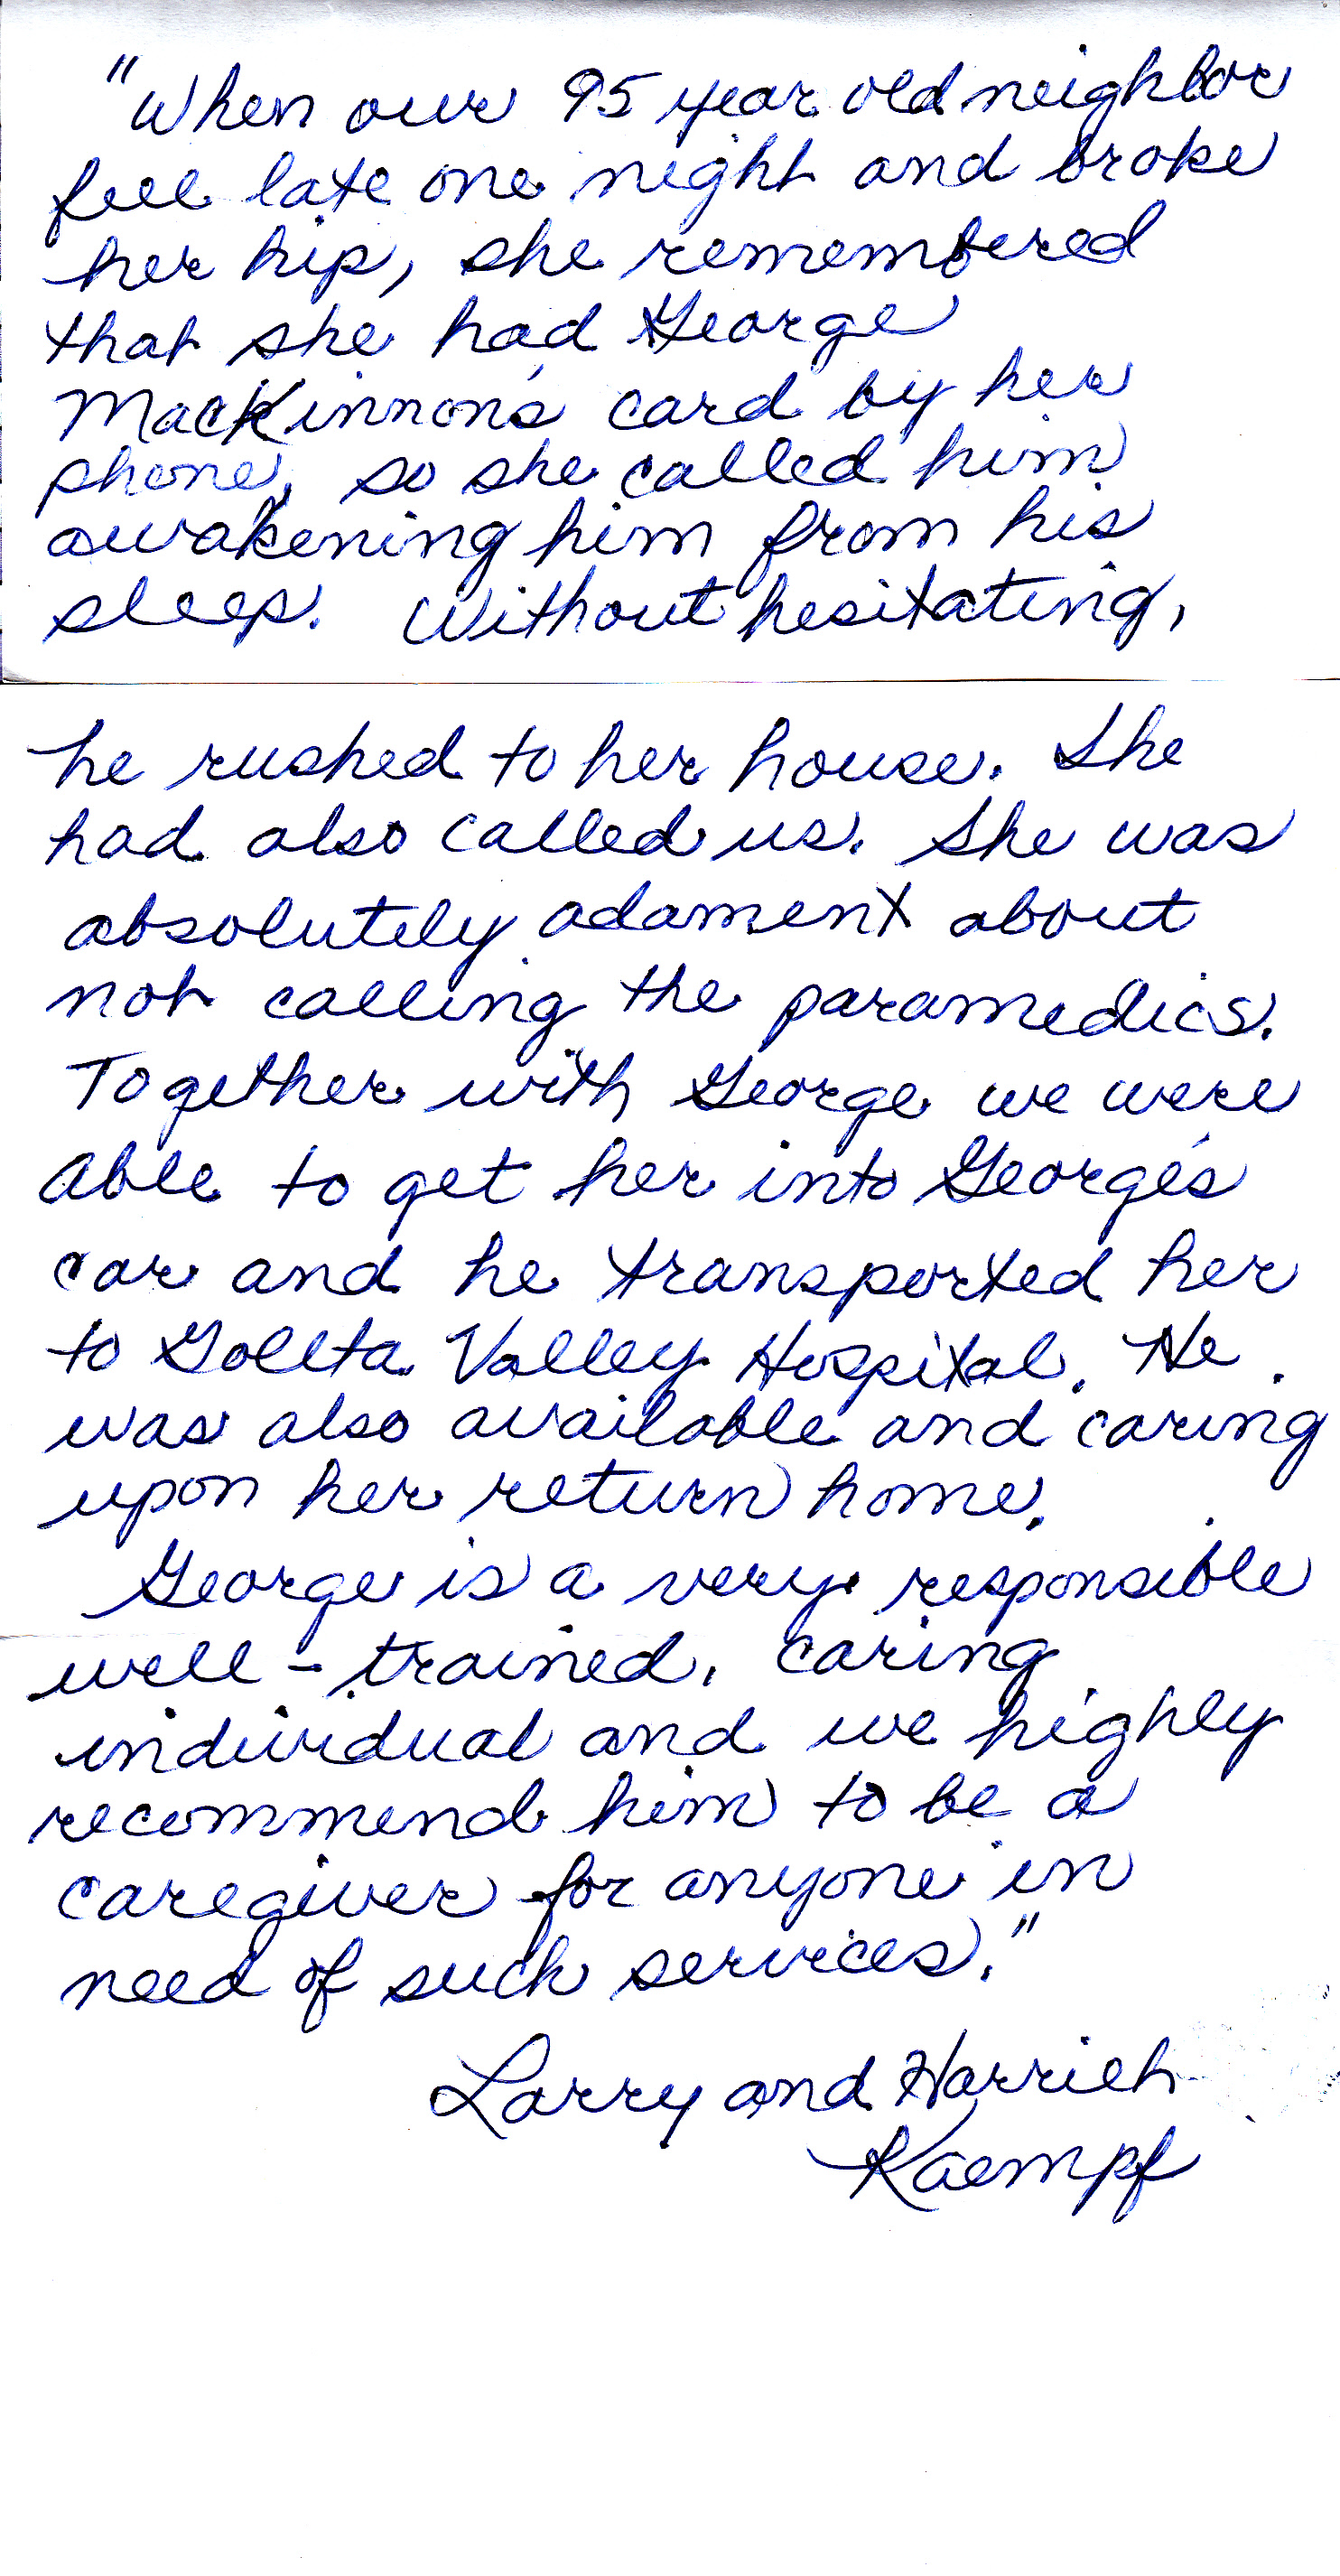 "When our 95 year old neighbor
fell late one night and broke
her hip, she remembered
that she had George
MacKinnon's card by her
phone, so she called him
awakening him from his
sleep. Without hesitating,
he rushed to her house. She
had also called us. She was
absolutely adament about
not calling the paramedics.
Together with George we were
able to get her into George's
car and he transported her
to Goleta Valley Hospital. He
was also available and caring
upon her return home.
George is a very responsible
well-trained, caring
individual and we highly
recommend him to be a
caregiver for anyone in
need of such services."
Larry and Harriet
Kaempf